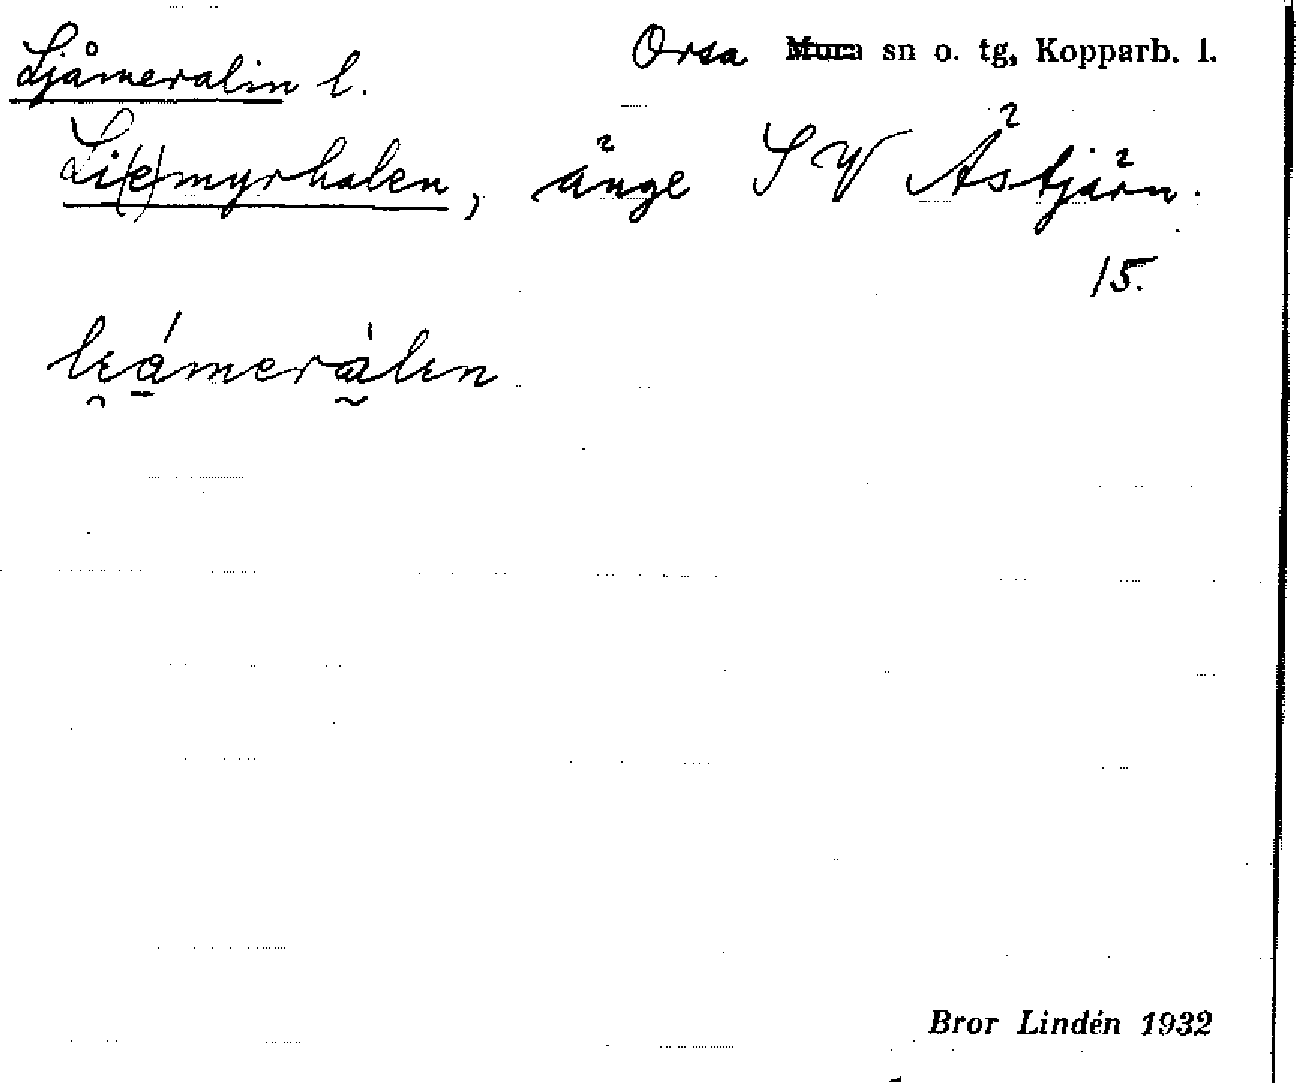 Ljåmeralin l. Orsa Mora sn o. tg, Kopparb. l.
Li(e)myrhalen, änge S V Åstjärn.
15.
leámerálen
Bror Lindén 1932